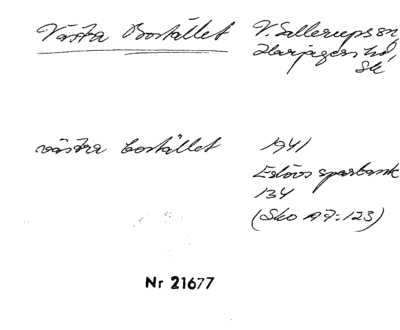 Västra Bostället V. Sallerups sn,
Harjagers hd,
Sk
västra bostället 1941
Eslövs sparbank
134
(Sko A7:123)
Nr 21677